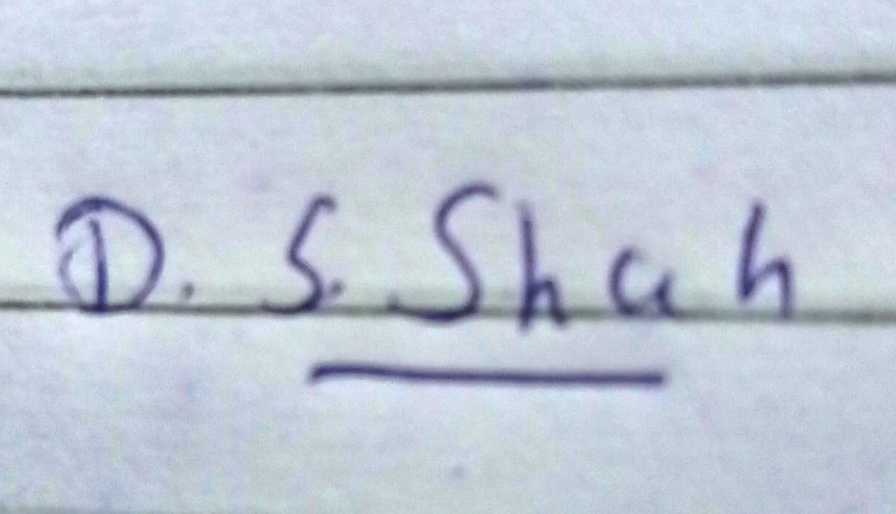 D. S. Shah